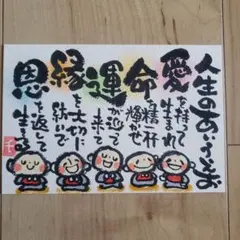 人生のあいうえお
愛を持って
生まれ
命を精一杯
輝かせ
運が巡って
来て
縁を大切に
紡いで
恩を返して
生きる